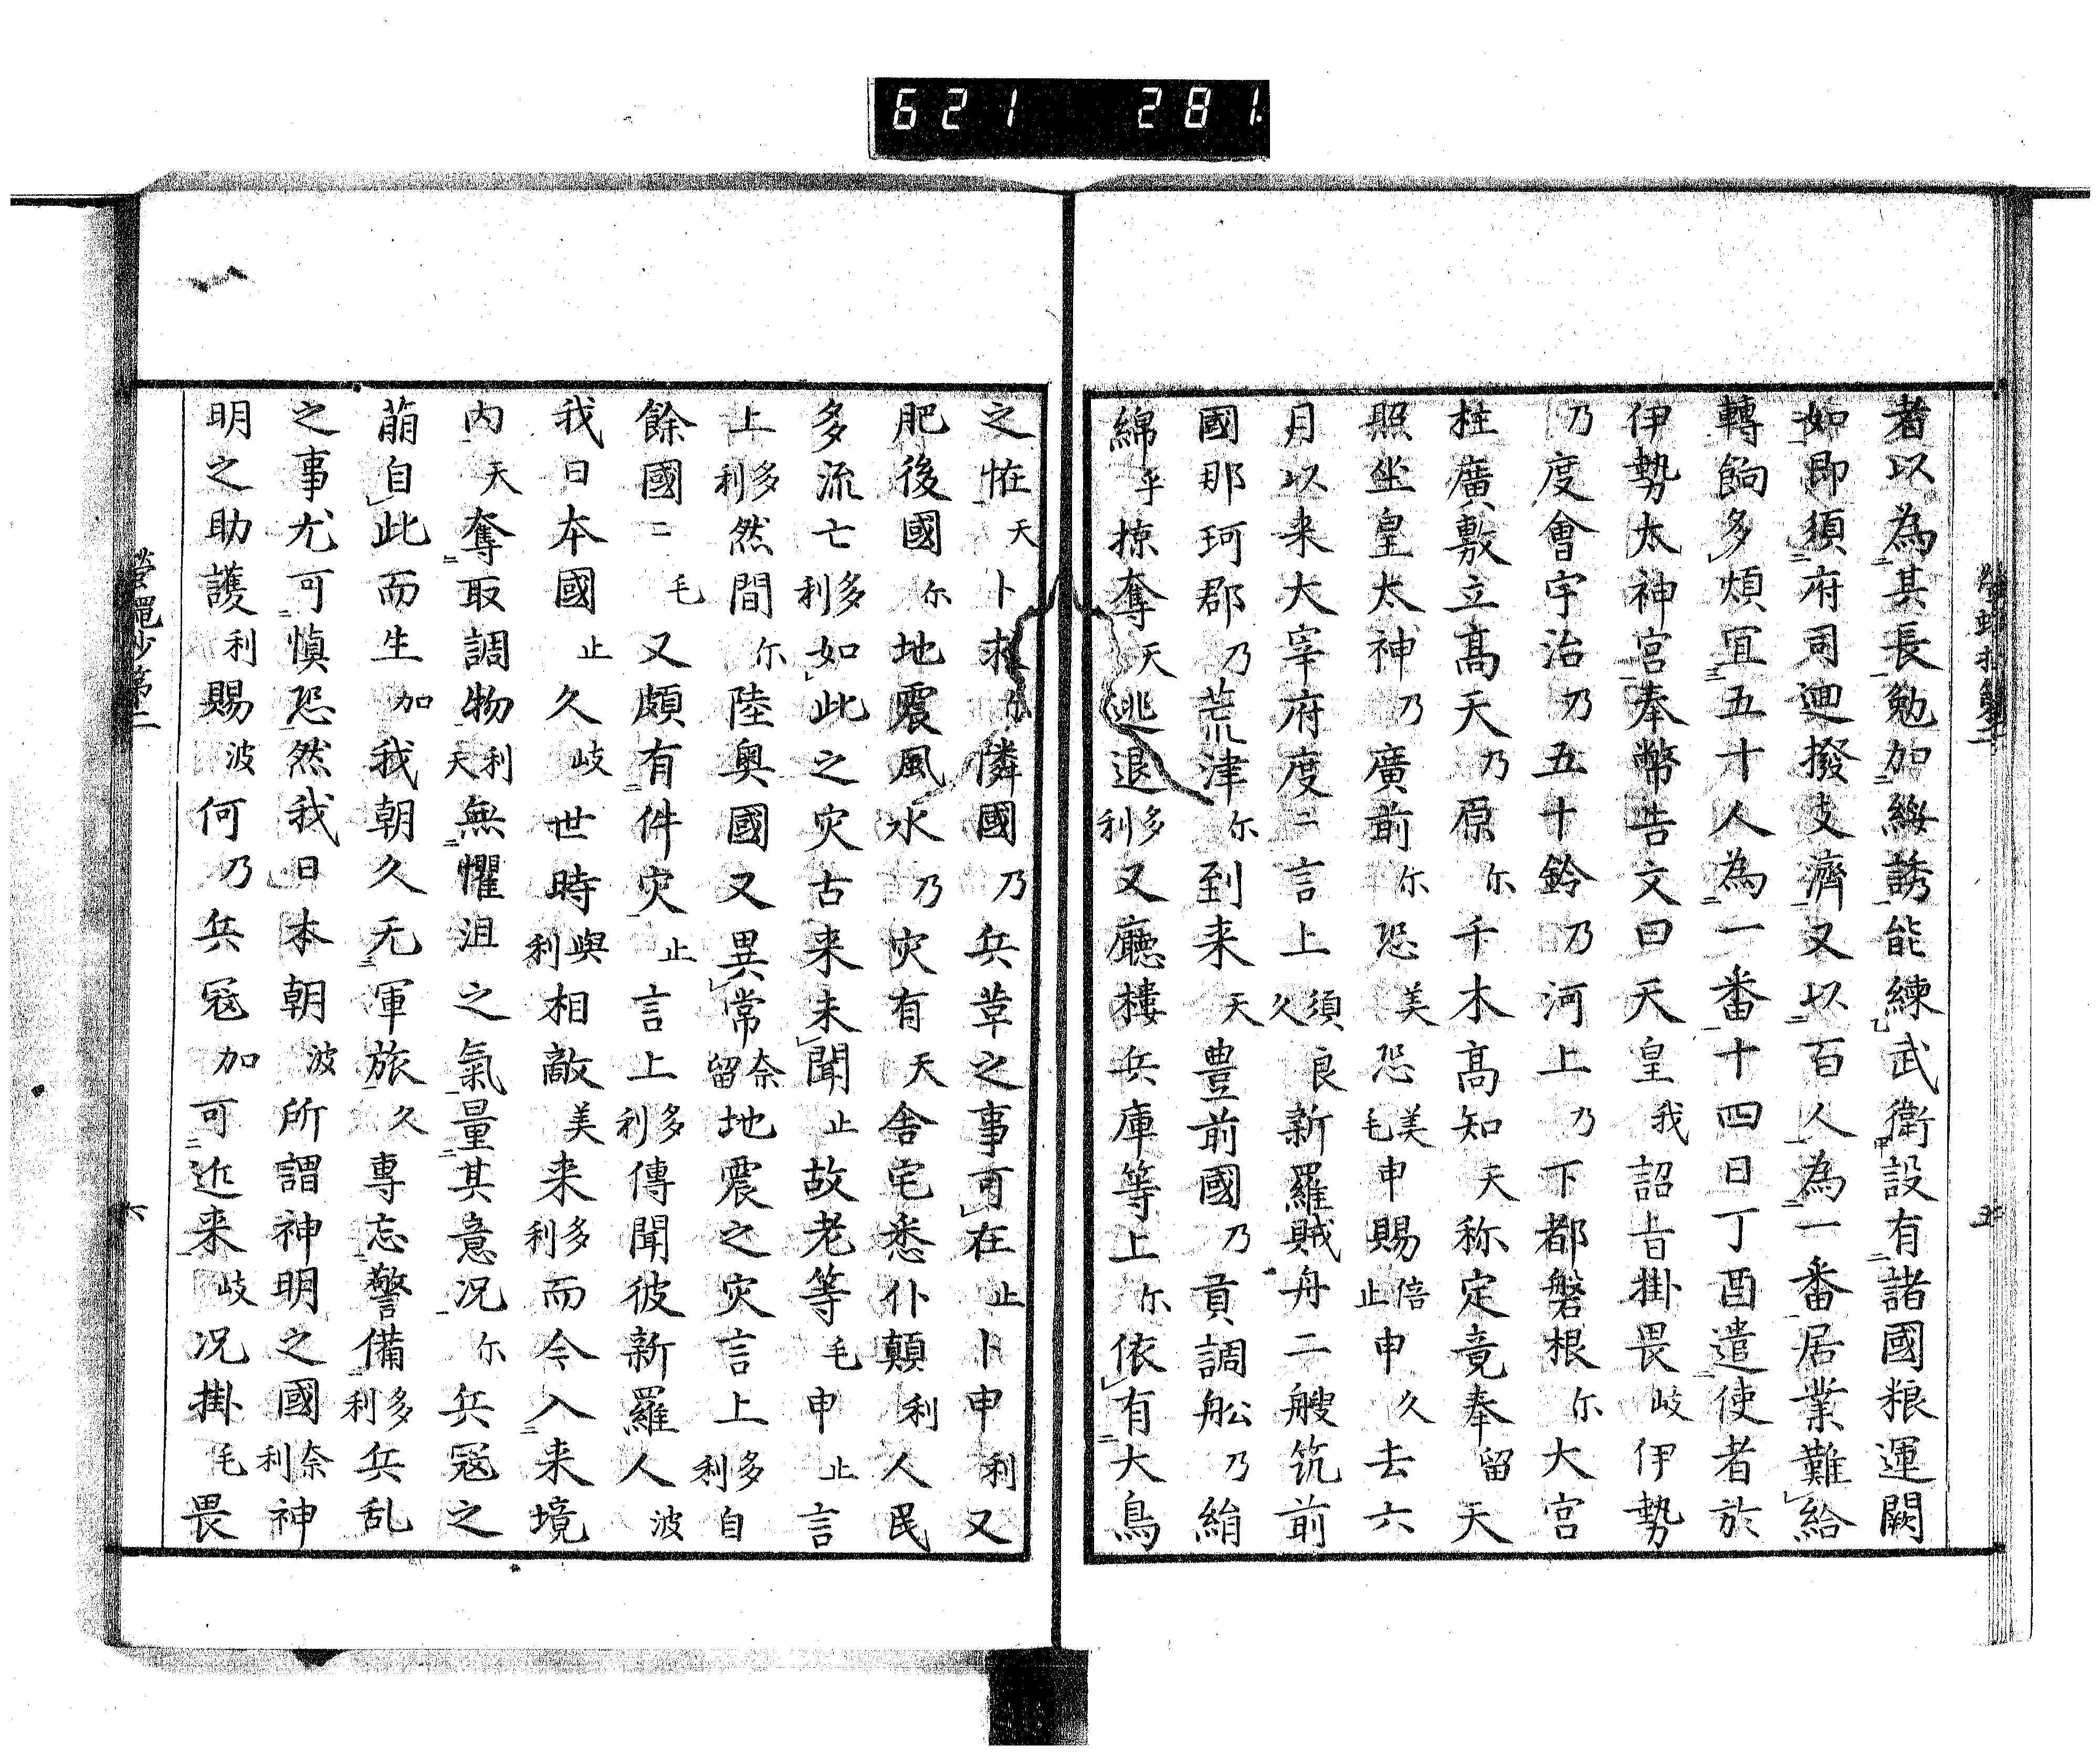 621 281.
者以為其長勉加綏誘能練武衛設有諸國粮運闕
如即須府司廻撥支濟又以百人為一番居業難給
轉餉多煩宜五十人為一番十四日丁酉遣使者於
伊勢太神宮奉幣告文曰天皇我詔旨掛畏岐伊勢
乃度會宇治乃五十鈴乃河上乃下都磐根尓大宮
柱廣敷立高天乃原尓千木高知天称定竟奉留天
照坐皇太神乃廣前尓恐美恐美毛申賜倍止申久去六
月以来大宰府度〻言上須久良新羅賊舟二艘筑前
國那珂郡乃荒津尓到来天豊前國乃貢調舩乃絹
綿乎掠奪天逃退多利又廳樓兵庫等上尓依有大鳥
之恠天卜求尓憐國乃兵革之事可在止卜申利又
肥後國尓地震風水乃灾有天舎宅悉仆顛利人民
多流亡多利如此之灾古来未聞止故老等毛申止言
上多利然間尓陸奥國又異常奈留地震之灾言上多利自
餘國〻毛又頗有件灾止言上多利傳聞彼新羅人波
我日本國止久岐世時與利相敵美来多利而今入来境
内天奪取調物利天無懼沮之氣量其意况尓兵冦之
萠自此而生加我朝久无軍旅久專忘警備多利兵乱
之事尤可慎恐然我日本朝波所謂神明之國奈利神
明之助護利賜波何乃兵冦加可近来岐况掛毛畏
第二
六